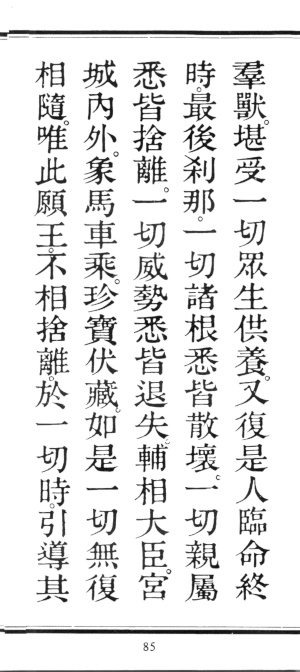 羣獸。堪受一切眾生供養。又復是人臨命終
時。最後剎那。一切諸根悉皆散壞。一切親屬
悉皆捨離。一切威勢悉皆退失。輔相大臣。宮
城內外。象馬車乘。珍寶伏藏。如是一切無復
相隨。唯此願王。不相捨離。於一切時。引導其
85